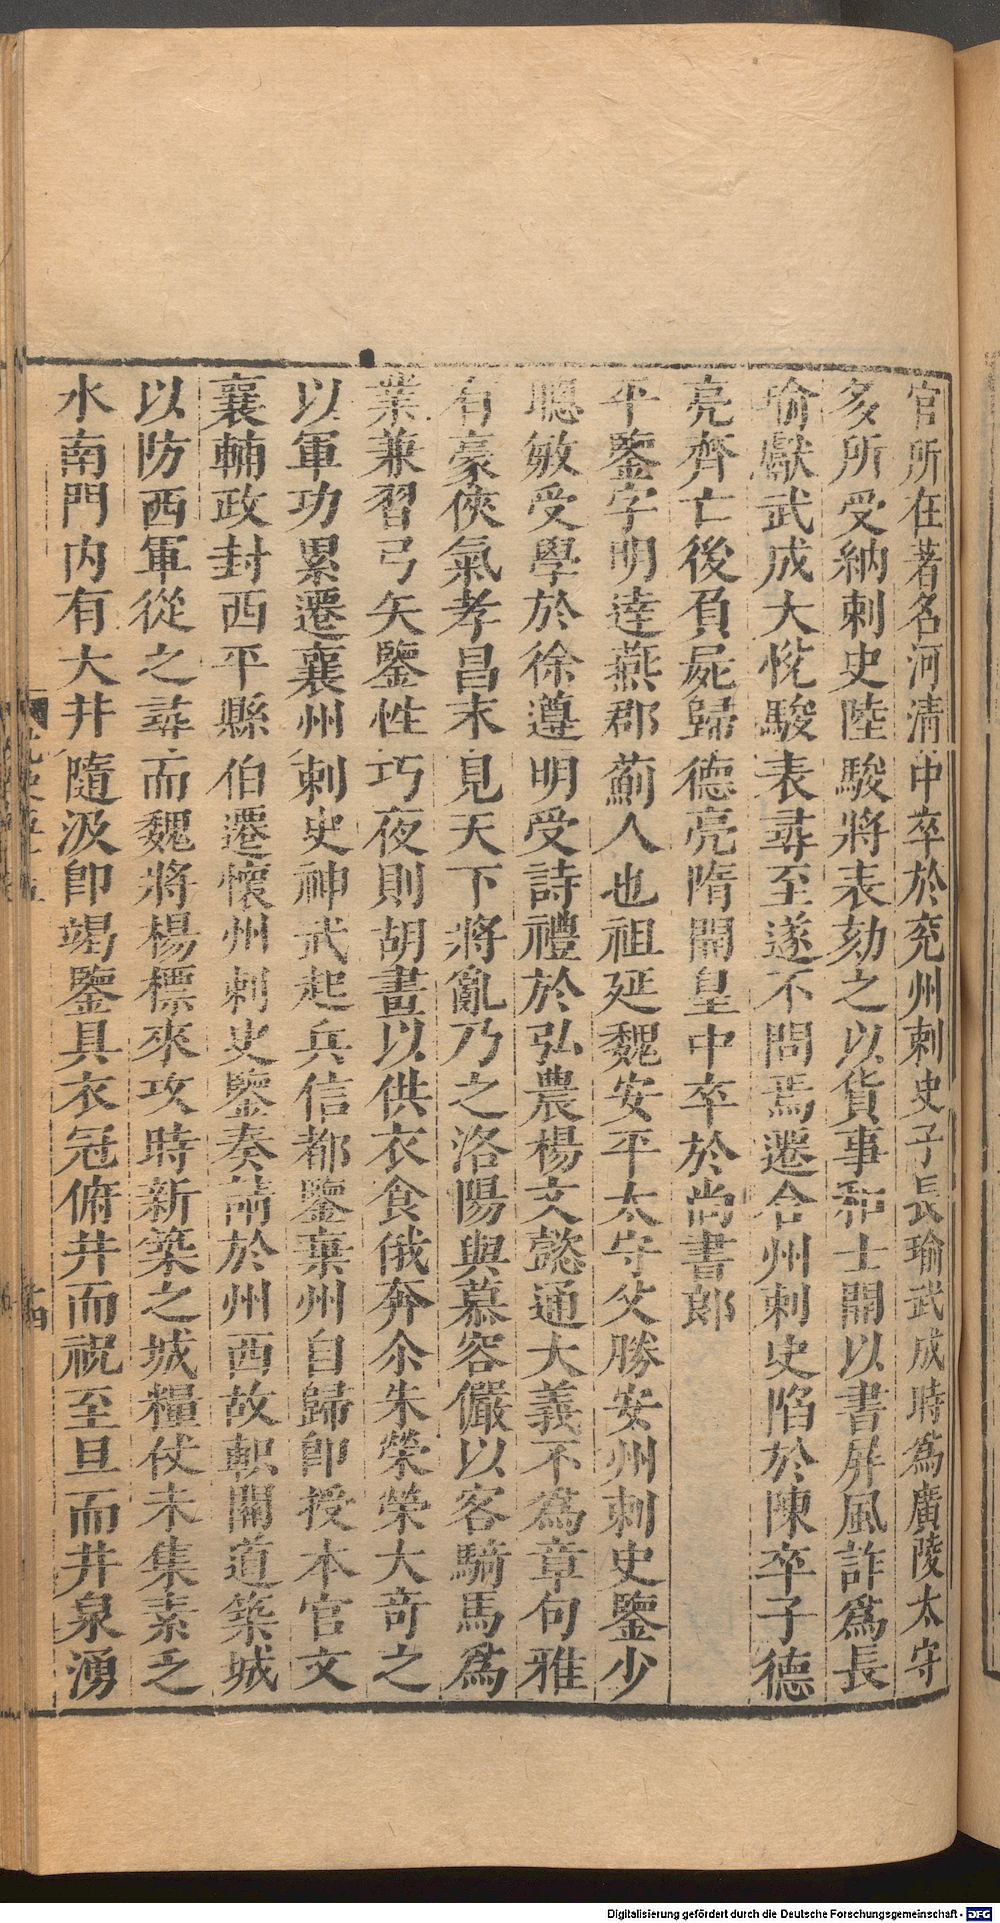 官所在著名河清中卒於兖州刺史子長瑜武成時爲廣陵太守
多所受納刺史陸駿將表劾之以貨事和士開以書屏風詐爲長
瑜獻武成大恱駿表尋至遂不問焉遷合州刺史陷於陳卒子德
亮齊亡後負屍歸德亮隋開皇中卒於尚書郎
平鑒字明逹燕郡薊人也祖延魏安平太守父勝安州刺史鑒少
聰敏受學於徐遵明受詩禮於弘農楊文懿通大義不爲章句雅
有豪俠氣孝昌末見天下將亂乃之洛陽與慕容儼以客騎馬爲
業兼習弓矢鑒性巧夜則胡畫以供衣食俄奔尒朱榮榮大奇之
以軍功累遷襄州刺史神武起兵信都鑒棄州自歸即授本官文
襄輔政封西平縣伯遷懷州刺史鑒奏請於州西故軹關道築城
以防西軍從之尋而魏將楊標來攻時新築之城糧仗未集素乏
水南門内有大井隨汲即竭鑒具衣冠俯井而祝至旦而井泉湧
Digitalisierung gefördert durch die Deutsche Forschungsgemeinschaft - DFG